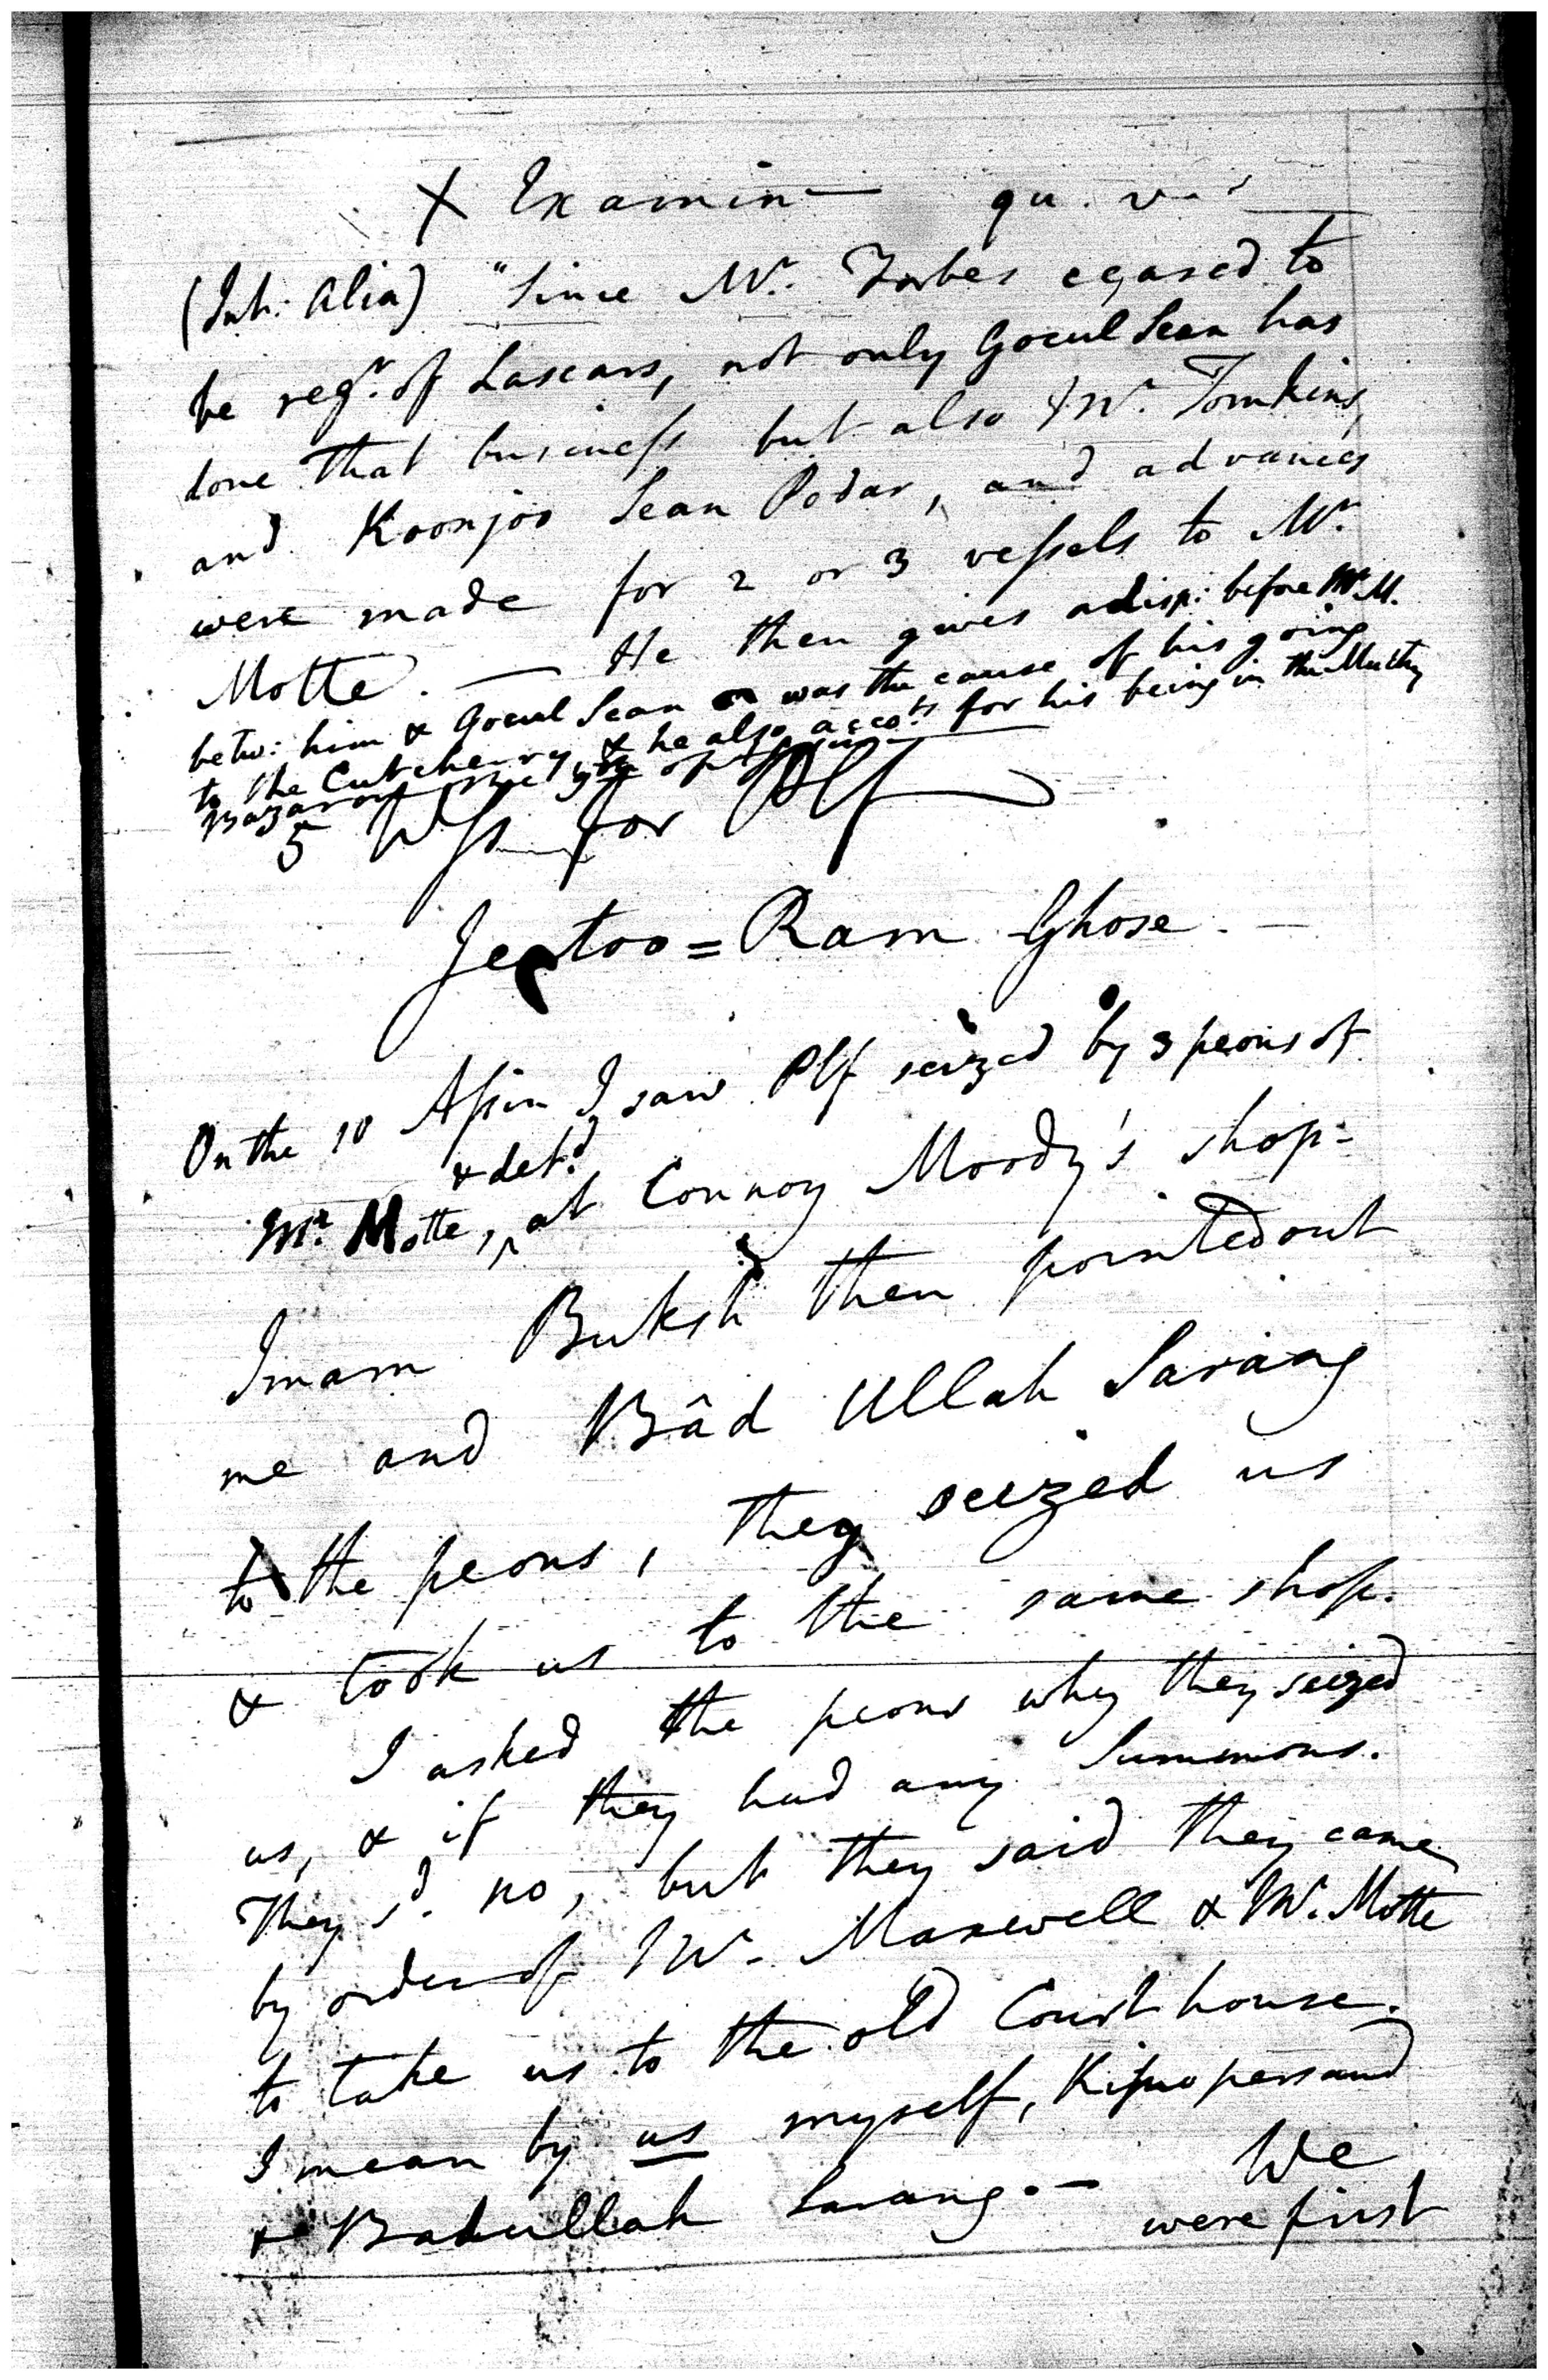 X Examin qu.
(Int: Alia) "Since Mr. Forbes ceased to
be regr. of Lascars, not only Gocul Sean has
done that business but also Mr. Tomkins
and Koonjoo Sean Podar, and advances
were made for 2 or 3 vessels to Mr.
Motte. — He then gives a disp: before Mr. M.
betw: him & Gocul Sean was the cause of his going
to the Cutcherry & he also accots for his being in the
Bazar on the
5 Ws for Plf
Jeetoo = Ram Ghose. —
On the 10 Assin I saw Plf seized by 3 peons of
& detd.
Mr. Motte, ^ at Connoy Moody's shop -
Imam Buksh then pointed out
me and Bâd Ullah Sarang
to the peons, they seized us
& took us to the same shop.
I asked the peons why they seized
us, & if they had any Summons.
They sd. no, but they said they came
by order of Mr. Maxwell & Mr. Motte
to take us to the old Court house.
I mean by us myself, Kisnopersaud
& Badullah Sarang. — We
were first